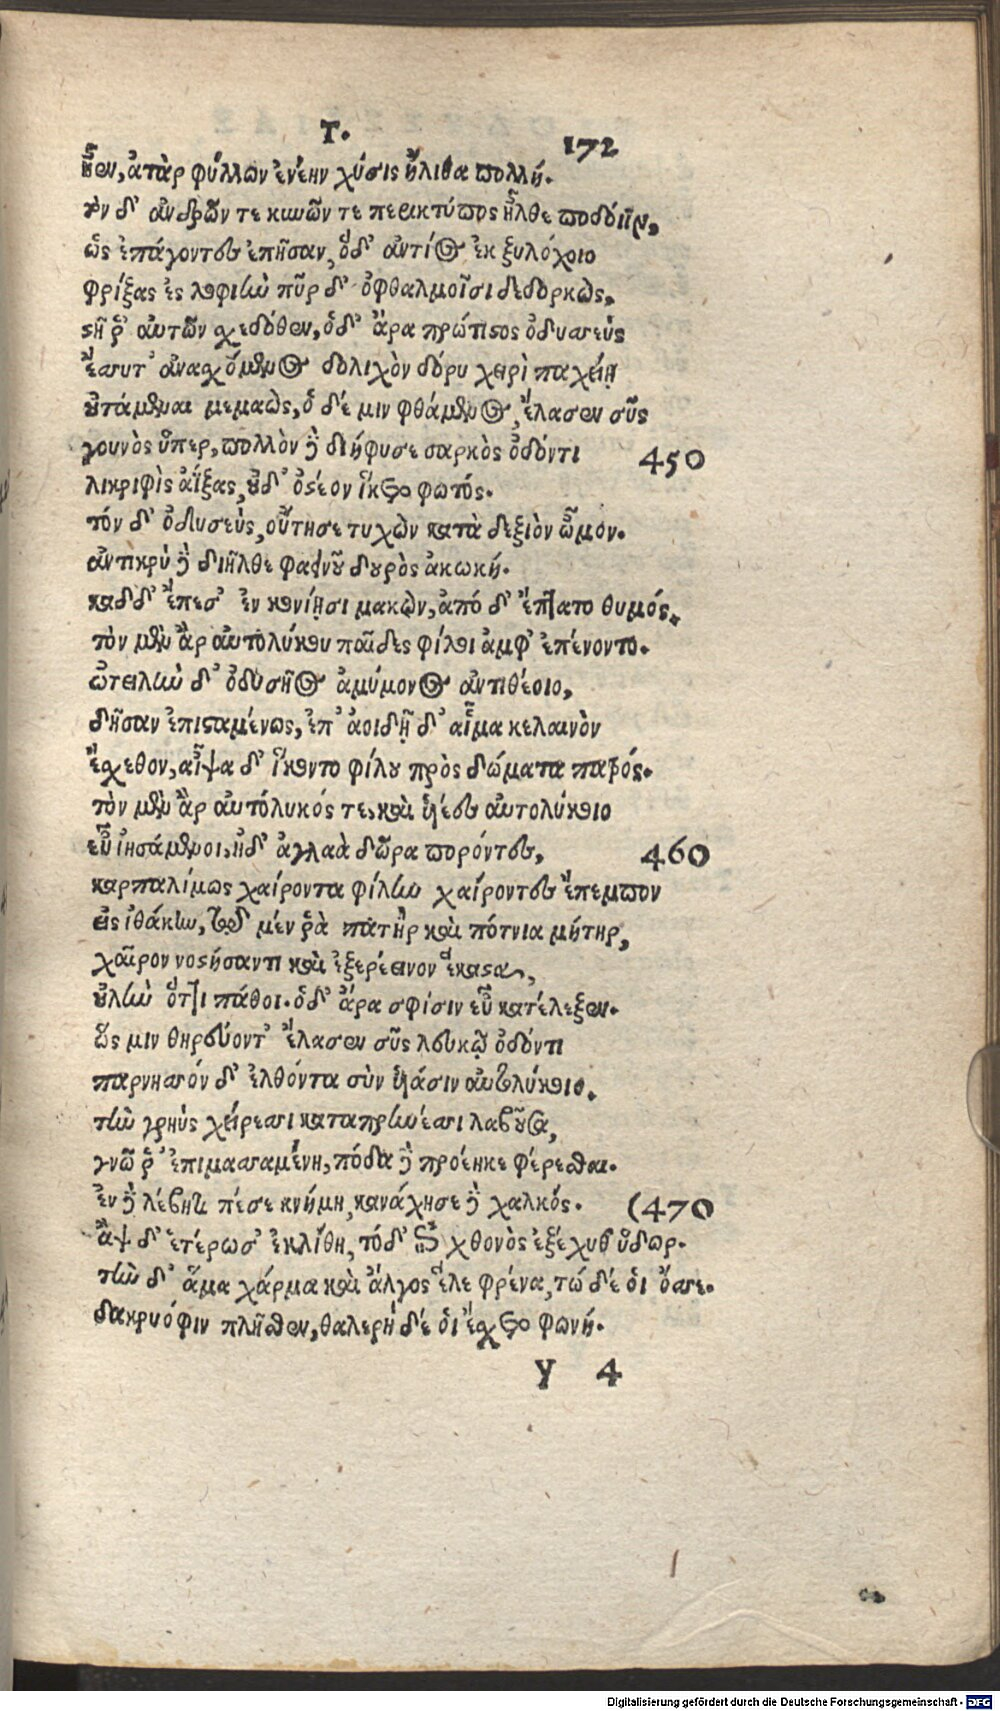 Τ. 172
ἦεν, ἀτὰρ φύλλων ἐνέην χύσις ἤλιθα πολλή.
τὸν δ' ἀνδρῶν τε κυνῶν τε περικτύπος ἦλθε ποδοῖϊν,
ὡς ἐπάγοντες ἐπῇσαν, ὁ δ' ἀντίος ἐκ ξυλόχοιο
φρίξας ἐς λοφιὴν πῦρ δ' ὀφθαλμοῖσι δεδορκὼς,
στῆ ῥ' αὐτῶν σχεδόθεν, ὁ δ' ἄρα πρώτιστος ὀδυσσεὺς
ἔσσυτ' ἀνασχόμενος δολιχὸν δόρυ χειρὶ παχείῃ
οὐτάμεναι μεμαὼς, ὁ δέ μιν φθάμενος, ἔλασεν σῦς
γουνὸς ὕπερ, πολλὸν δὲ διήφυσε σαρκὸς ὀδόντι 450
λικριφὶς ἀΐξας, οὐδ' ὀστέον ἵκετο φωτός.
τόν δ' ὀδυσεὺς, οὔτησε τυχὼν κατὰ δεξιὸν ὦμον.
ἀντικρὺ δὲ διῆλθε φαεινοῦ δουρὸς ἀκωκή.
καδδ' ἔπεσ' ἐν κονίῃσι μακὼν, ἀπό δ' ἔπτατο θυμός.
τὸν μὲν ἂρ αὐτολύκου παῖδες φίλοι ἀμφ' ἐπένοντο.
ὠτειλὴν δ' ὀδυσῆος ἀμύμονος ἀντιθέοιο,
δῆσαν ἐπισταμένως, ἐπ' ἀοιδῇ δ' αἷμα κελαινὸν
ἔσχεθον, αἶψα δ' ἵκοντο φίλου πρὸς δώματα πατρός.
τὸν μὲν ἂρ αὐτόλυκός τε, καὶ υἱέες αὐτολύκοιο
εὖ ἰησάμενοι, ἠδ' ἀγλαὰ δῶρα πορόντες, 460
καρπαλίμως χαίροντα φίλην χαίροντες ἔπεμπον
εἰς ἰθάκην, τοῦ μέν ῥὰ πατὴρ καὶ πότνια μήτηρ,
χαῖρον νοστήσαντι καὶ ἐξερέεινον ἕκαστα,
οὐλὴν ὅττι πάθοι. ὁ δ' ἄρα σφίσιν εὖ κατέλεξεν.
ὥς μιν θηρεύοντ' ἔλασεν σῦς λευκῷ ὀδόντι
παρνησσόν δ' ἐλθόντα σὺν υἱάσιν αὐτολύκοιο.
τὴν γρηὺς χείρεσσι καταπρηνέσσι λαβοῦσα,
γνῶ ῥ' ἐπιμασσαμένη, πόδα δὲ προέηκε φέρεσθαι.
ἐν δὲ λέβητι πέσε κνήμη, κανάχησε δὲ χαλκός. (470
ἂψ δ' ἑτέρωσ' ἐκλίθη, τό δ' ἐπὶ χθονὸς ἐξέχυθ' ὕδωρ.
τὴν δ' ἅμα χάρμα καὶ ἄλγος ἕλε φρένα, τώ δέ ὁι ὄσσε.
δακρυόφιν πλῆσθεν, θαλερὴ δέ ὁι ἔσχετο φωνή.
y 4
Digitalisierung gefördert durch die Deutsche Forschungsgemeinschaft - DFG